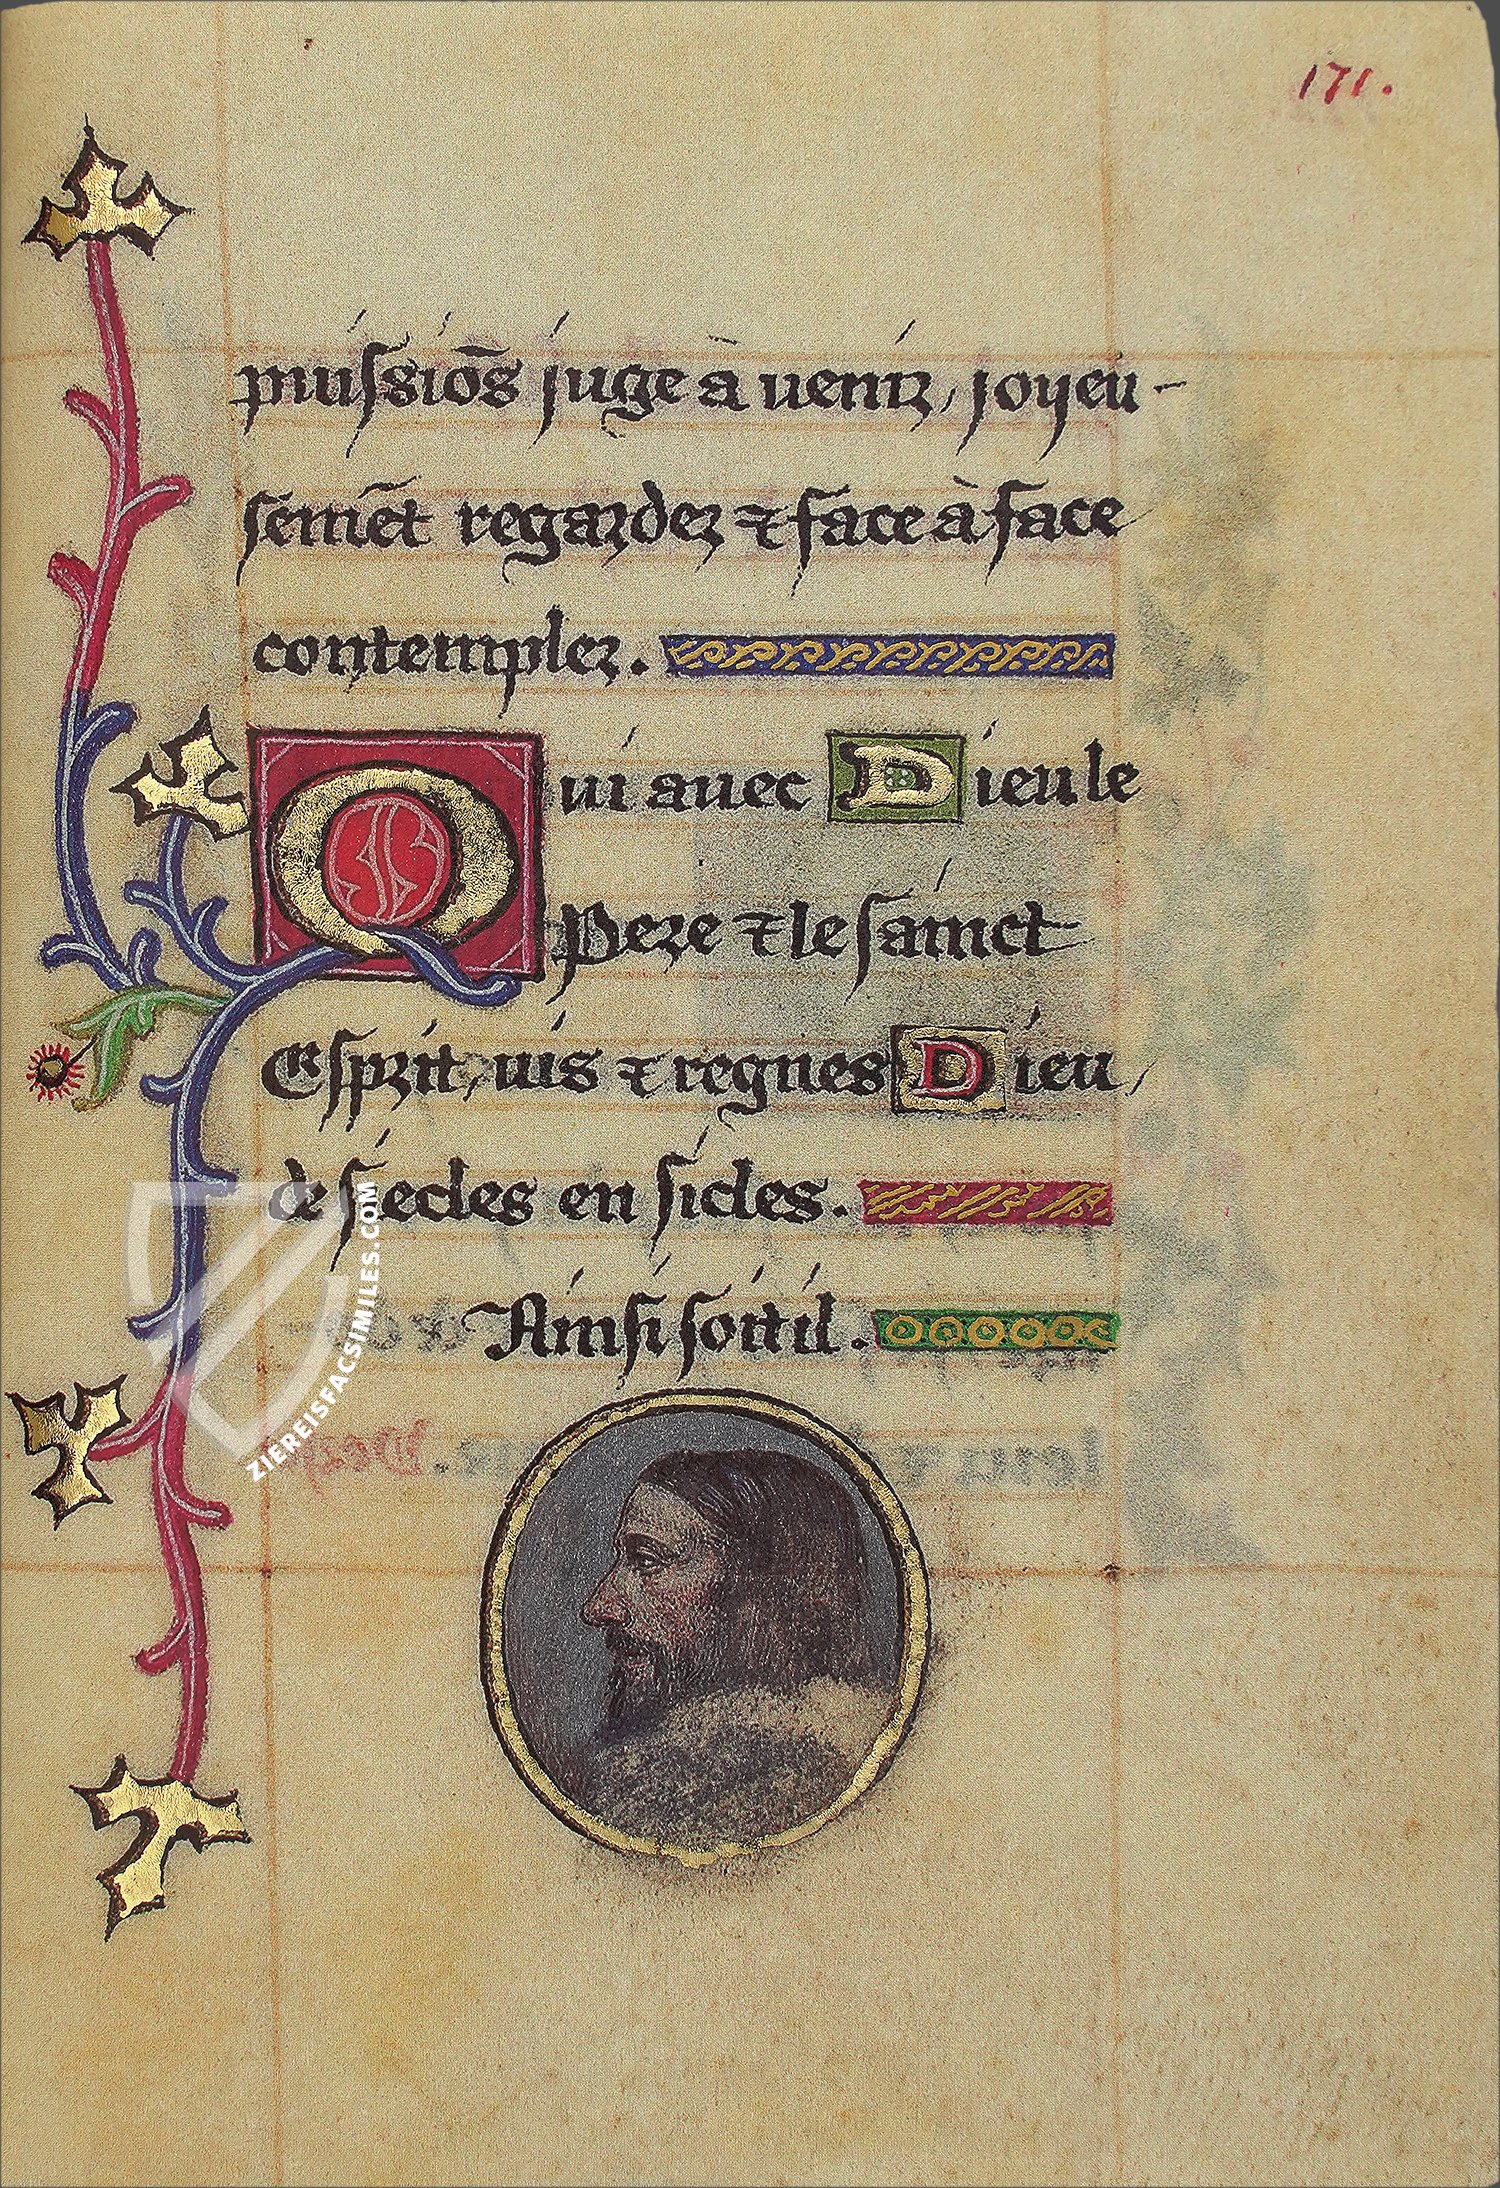 171.
puissiōs juge à venir, joyeu-
semēt regarder & face à face
contempler.
Qui avec Dieu le
Pere & le sainct
Esprit, vis & regnes Dieu,
de siecles en sicles.
Ainsi soit il.
ZIEREISFACSIMILES.COM